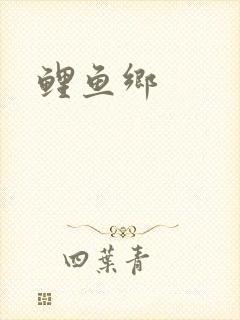 鲤鱼鄉
四葉青